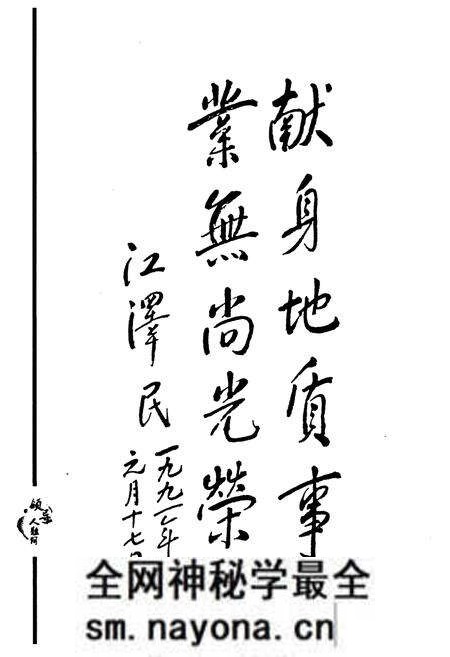 献身地质事
業無尚光榮
江澤民
一九九年
元月十七日
全网神秘学最全
sm.nayona.cn